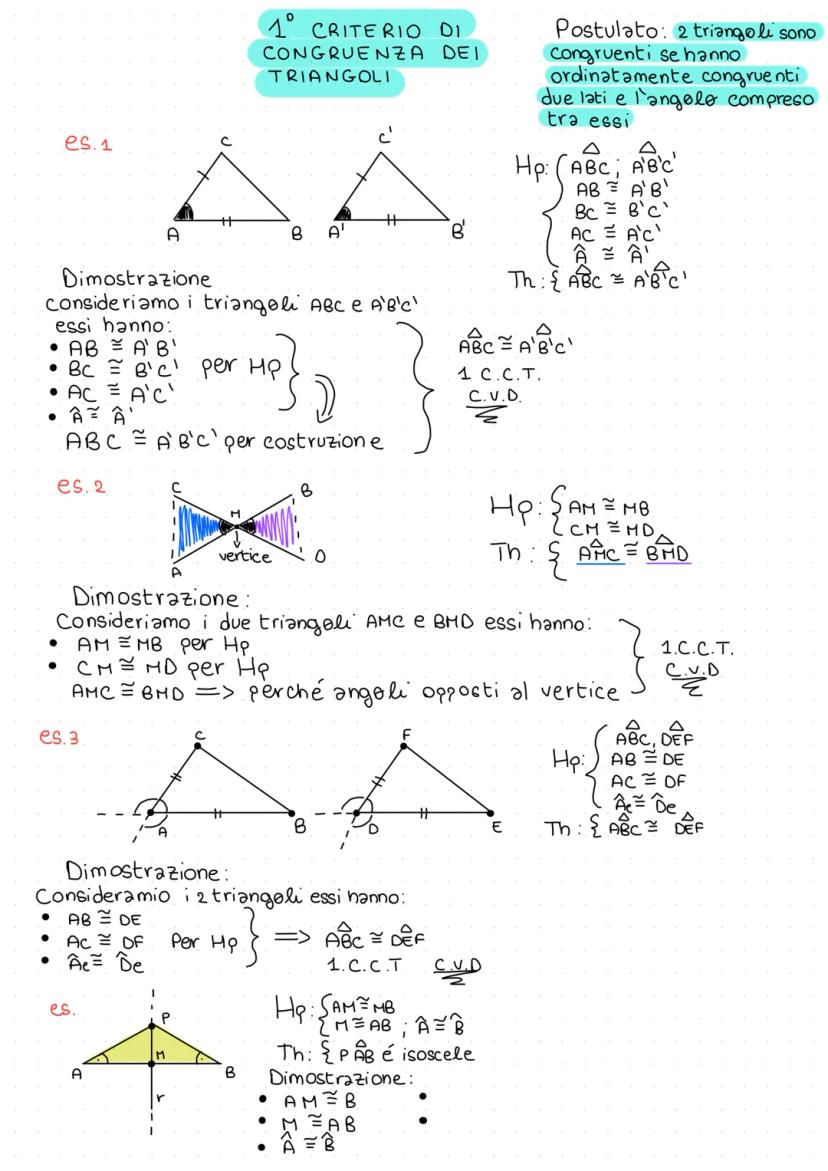 1° CRITERIO DI
CONGRUENZA DEI
TRIANGOLI
Postulato: 2 triangoli sono
congruenti se hanno
ordinatamente congruenti
due lati e l'angolo compreso
tra essi
es.1
C
A
B
C'
A'
B'
Hp: { ABC; A'B'C'
AB ≅ A'B'
BC ≅ B'C'
AC ≅ A'C'
Â ≅ Â'
Th: { ABC ≅ A'B'C'
Dimostrazione
consideriamo i triangoli ABC e A'B'C'
essi hanno:
• AB ≅ A'B'
• BC ≅ B'C' per Hp
• AC ≅ A'C'
• Â ≅ Â'
ABC ≅ A'B'C' per costruzione
ABC ≅ A'B'C'
1 C.C.T.
C.V.D.
es.2
C
B
M
vertice
A
D
Hp: { AM ≅ MB
CM ≅ MD
Th: { AMC ≅ BMD
Dimostrazione:
Consideriamo i due triangoli AMC e BMD essi hanno:
• AM ≅ MB per Hp
• CM ≅ MD per Hp
AMC ≅ BMD => perché angoli opposti al vertice
1.C.C.T.
C.V.D
es.3
C
A
B
F
D
E
Hp: { ABC, DEF
AB ≅ DE
AC ≅ DF
Âe ≅ D̂e
Th: { ABC ≅ DEF
Dimostrazione:
Consideramio i 2 triangoli essi hanno:
• AB ≅ DE
• AC ≅ DF Per Hp
• Âe ≅ D̂e
=> ABC ≅ DEF
1.C.C.T C.V.D
es.
P
A
M
B
r
Hp: { AM ≅ MB
M ≅ AB ; Â ≅ B̂
Th: { PAB é isoscele
Dimostrazione:
• AM ≅ B •
• M ≅ AB •
• Â ≅ B̂